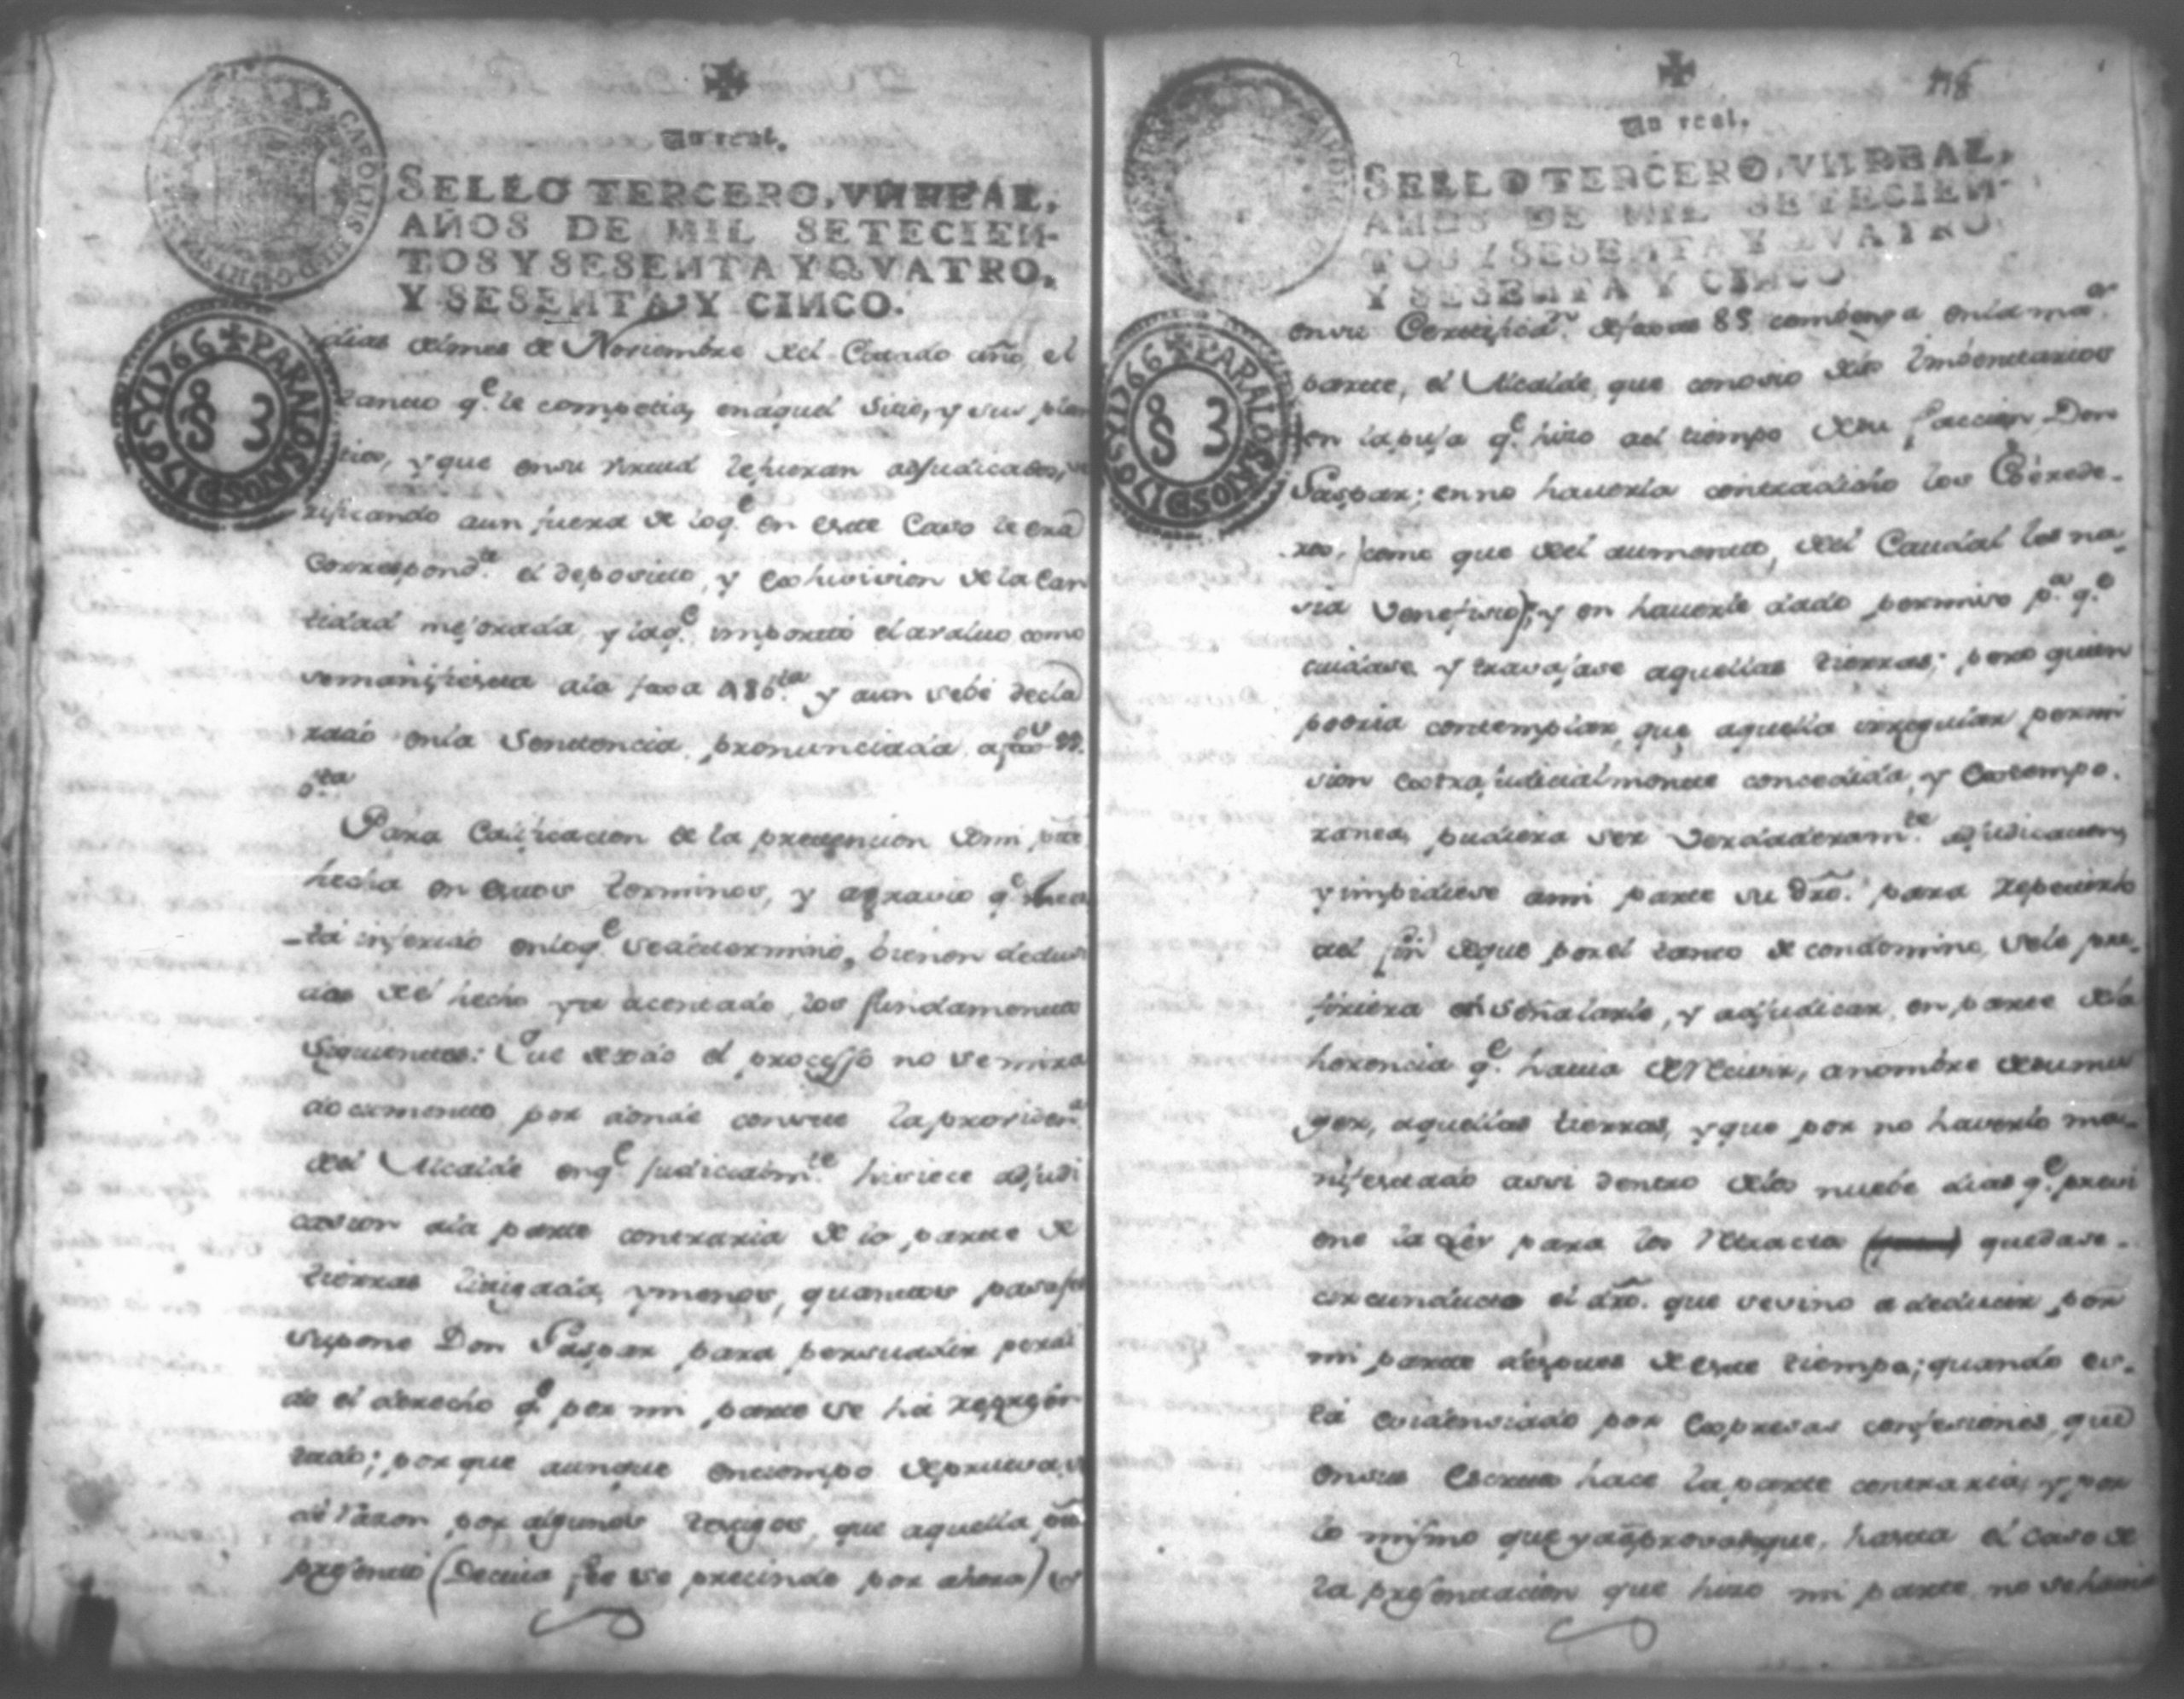 Un real.
SELLO TERCERO, VN REAL,
AÑOS DE MIL SETECIEN-
TOS Y SESENTA Y QVATRO,
Y SESENTA Y CINCO.
CAROLUS
PARA LOS AÑOS DE 1765 Y 1766
§ 3
dias del mes de Noviembre del Citado año, el
tanto q.e le competia, en aquel sitio, y sus plan
tios, y que en su virtud le fueran adjudicados, ve
rificando aun fuera de lo q.e en este Caso le era
correspond.te el deposito, y Exhivision de la Can
tidad mejorada, y la q.e importó el avaluo, como
se manifiesta a la foxa 486.ta y aun se bé decla
rado en la Sentencia, pronunciada a fox.s
Para Calificacion de la pretencion de mi p.te
hecha en estos terminos, y agravio q.e
inferido en lo q.e se determinó, vienen dedusi
dos del hecho ya acentado, los fundamentos
siguientes: Que de todo el processo no se mira
documento por donde conste la providen.a
del Alcalde en q.e judicialm.te hisiece adjudi
casion a la parte contraria de la parte de
tierras litigada, y menos, quantos pasajes
supone Don Gaspar para persuadir perdi
do el derecho q.e por mi parte se há represen
tado; porque aunque en tiempo de prueva, se
dé razon por algunos testigos, que aquella p.te
presentó (de cuia fee se precinde por ahora)
Un real.
SELLO TERCERO, VN REAL,
AÑOS DE MIL SETECIEN-
TOS Y SESENTA Y QVATRO,
Y SESENTA Y CINCO
PARA LOS AÑOS DE 1765 Y 1766
§ 3
en su Certificás.n de foxas 88 comben͠ga en la ma.or
parte, el Alcalde, que conosio de los Imbentarios
en la puja q.e hizo al tiempo de su faccion, Don
Gaspar; en no haverla contradicho los Cohérede-
ros, (como que del aumento, del Caudal les na-
sia Venefisio); y en haverle dado permiso p.a q.e
cuidase y travajase aquellas tierras; pero quien
podria contemplar, que aquella irregular permi
sion Extrajudicialmente concedida, y Extempo-
ranea, pudiera ser verdaderam.te adjudicacion,
y impidiese a mi parte su dro. para repetirlo
al fin de que por el tanto de condomino, se le pre-
firiera en señalarle, y adjudicar, en parte de la
herencia q.e havia de Recivir, a nombre de su mu
ger, aquellas tierras, y que por no haverlo ma-
nifestado assi dentro de los nuebe dias q.e previ
ene la Ley para los Retracta quedase
circunducto el dro. que se vino a deducir por
mi parte despues de este tiempo; quando es-
tá evidensiado por Expresas confesiones, que
en sus Escritos hace la parte contraria, y por
lo mismo que hasta el caso de
la presentacion que hizo mi parte, no se havia